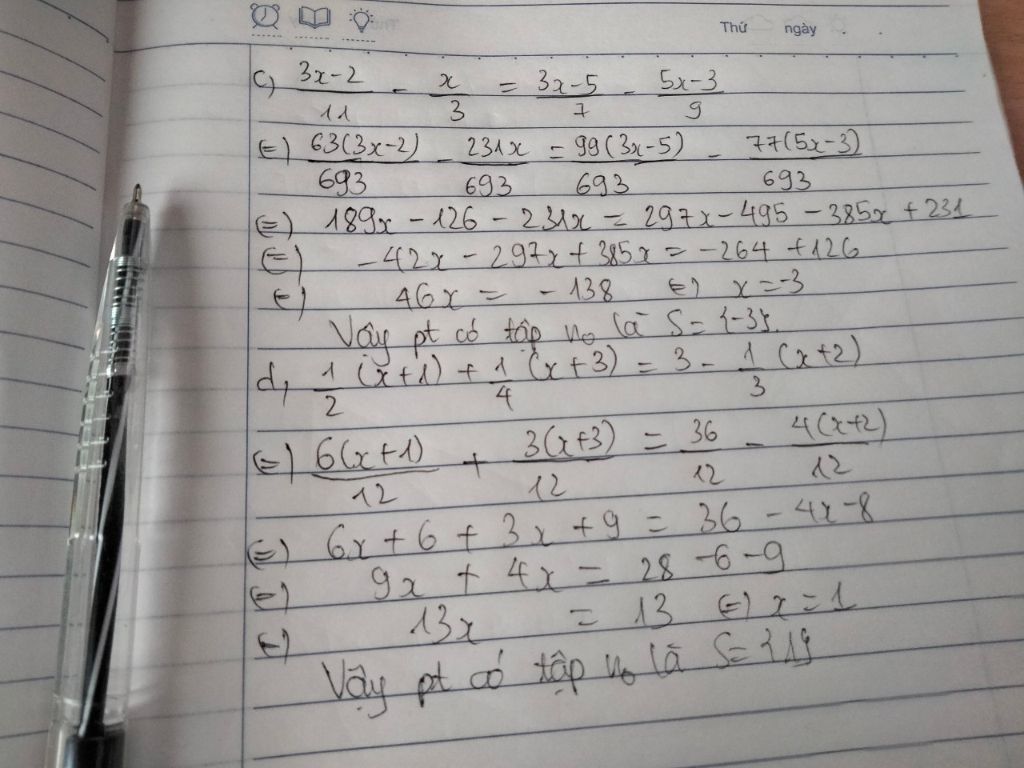 Thứ ngày
c, (3x-2)/11 - x/3 = (3x-5)/7 - (5x-3)/9
(=) 63(3x-2)/693 - 231x/693 = 99(3x-5)/693 - 77(5x-3)/693
(=) 189x - 126 - 231x = 297x - 495 - 385x + 231
(=) -42x - 297x + 385x = -264 + 126
(=) 46x = -138 (=) x = -3
Vậy pt có tập no là S = {-3}.
d, 1/2 (x+1) + 1/4 (x+3) = 3 - 1/3 (x+2)
(=) 6(x+1)/12 + 3(x+3)/12 = 36/12 - 4(x+2)/12
(=) 6x + 6 + 3x + 9 = 36 - 4x - 8
(=) 9x + 4x = 28 - 6 - 9
(=) 13x = 13 (=) x = 1
Vậy pt có tập no là S = {1}